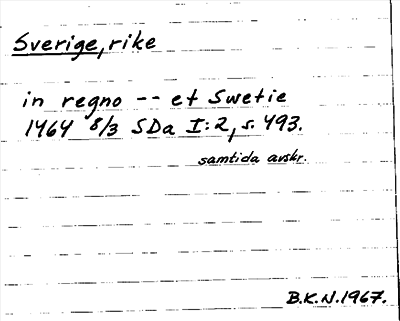 Sverige, rike
in regno -- et Swetie
1464 8/3 SDa I:2, s. 493.
samtida avskr.
B.K.N.1967.